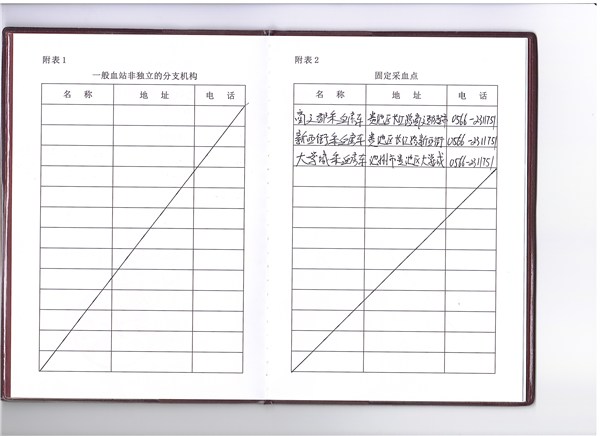 附表1
一般血站非独立的分支机构
名 称 地 址 电 话
附表2
固定采血点
名 称 地 址 电 话
采血房车 贵池区长江路 0566-2311751
新西街采血房车 贵池区长江路新西街 0566-2311751
大学城采血房车 池州市贵池区大学城 0566-2311751